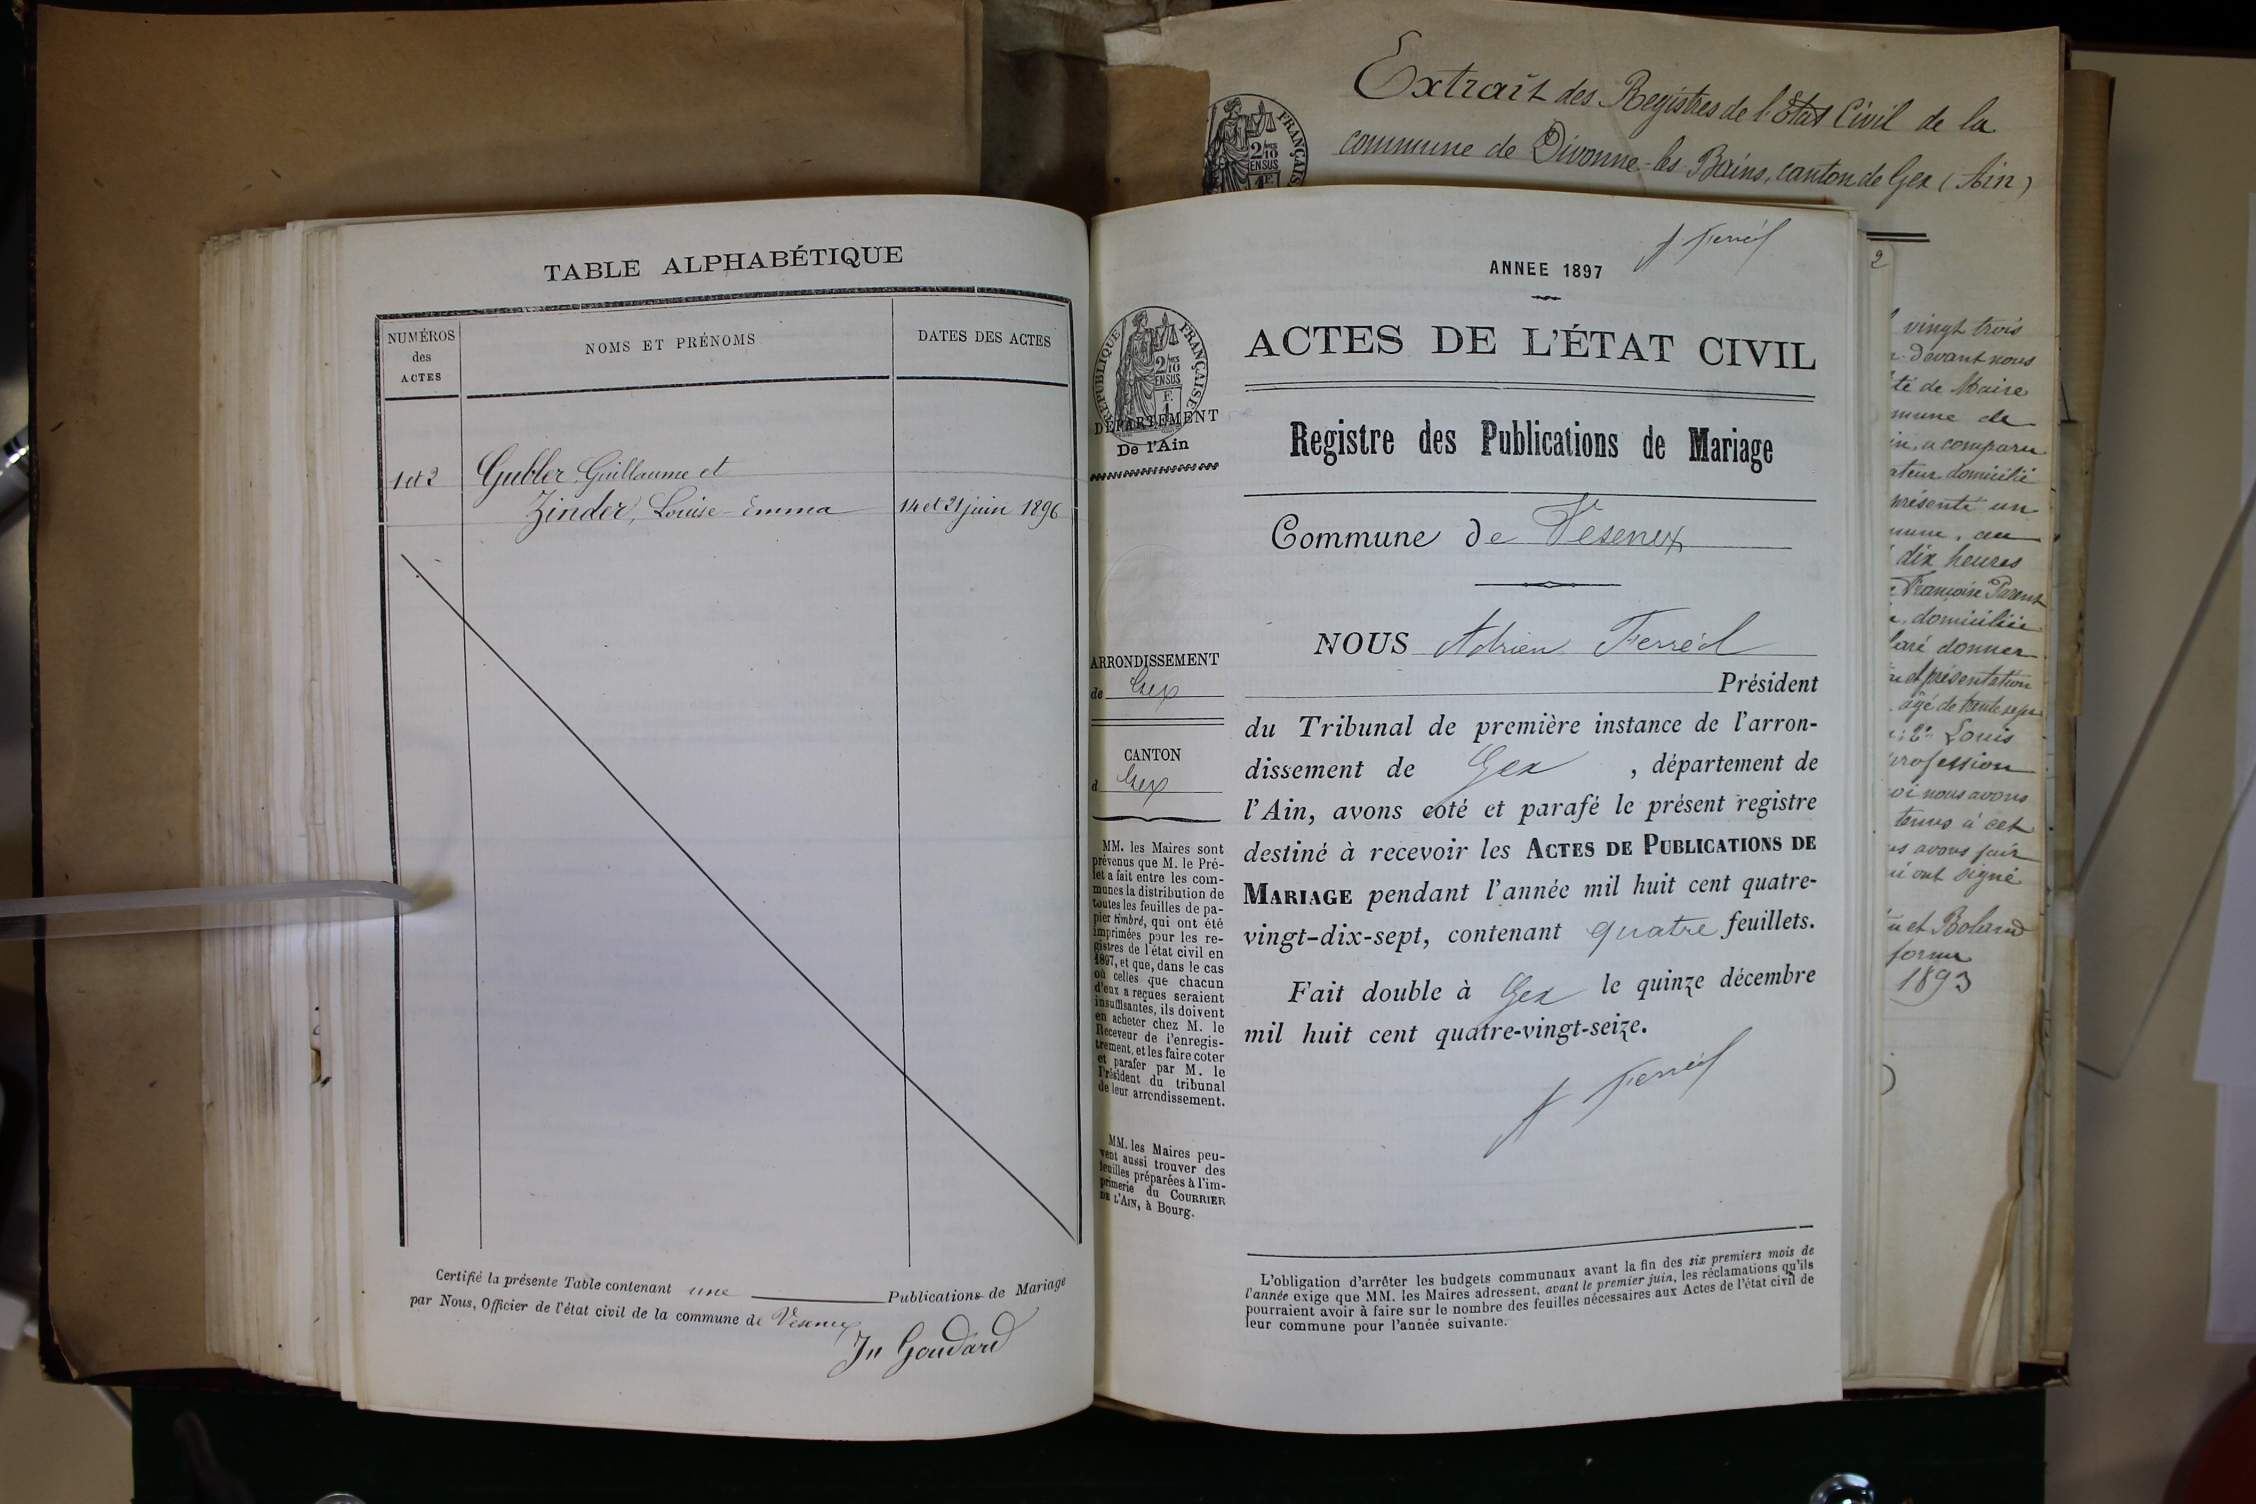 Extrait des Registres de l'Etat Civil de la
commune de Divonne-les-Bains, canton de Gex (Ain)
FRANÇAIS
2/10
EN SUS
1 F.
TABLE ALPHABÉTIQUE
NUMÉROS
des
ACTES
NOMS ET PRÉNOMS
DATES DES ACTES
1 et 2
Gubler Guillaume et
Zinder, Louise-Emma
14 et 21 juin 1896
Certifié la présente Table contenant une Publications de Mariage
par Nous, Officier de l'état civil de la commune de Vesenex
Jn Goudard
A Ferréol
ANNEE 1897
RÉPUBLIQUE FRANÇAISE
2/10
EN SUS
1 F.
DÉPARTEMENT
De l'Ain
ARRONDISSEMENT
de Gex
CANTON
d Gex
MM. les Maires sont
prévenus que M. le Pré-
fet a fait entre les com-
munes la distribution de
toutes les feuilles de pa-
pier timbré, qui ont été
imprimées pour les re-
gistres de l'état civil en
1897, et que, dans le cas
où celles que chacun
d'eux a reçues seraient
insuffisantes, ils doivent
en acheter chez M. le
Receveur de l'enregis-
trement, et les faire coter
et parafer par M. le
Président du tribunal
de leur arrondissement.
MM. les Maires peu-
vent aussi trouver des
feuilles préparées à l'im-
primerie du COURRIER
DE L'AIN, à Bourg.
ACTES DE L'ÉTAT CIVIL
Registre des Publications de Mariage
Commune de Vesenex
NOUS Adrien Ferréol
Président
du Tribunal de première instance de l'arron-
dissement de Gex , département de
l'Ain, avons coté et parafé le présent registre
destiné à recevoir les ACTES DE PUBLICATIONS DE
MARIAGE pendant l'année mil huit cent quatre-
vingt-dix-sept, contenant quatre feuillets.
Fait double à Gex le quinze décembre
mil huit cent quatre-vingt-seize.
A Ferréol
L'obligation d'arrêter les budgets communaux avant la fin des six premiers mois de
l'année exige que MM. les Maires adressent, avant le premier juin, les réclamations qu'ils
pourraient avoir à faire sur le nombre des feuilles nécessaires aux Actes de l'état civil de
leur commune pour l'année suivante.
2
vingt trois
devant nous
té de Maire
mune de
in, a comparu
ateur domicilié
présenté un
mune, au
dix heures
Françoise Parent
domiciliée
laré donner
et présentation
âgé de trente sept
2° Louis
profession
oi nous avons
tenus à cet
us avons fait
ui ont signé
et Roland
forme
1893